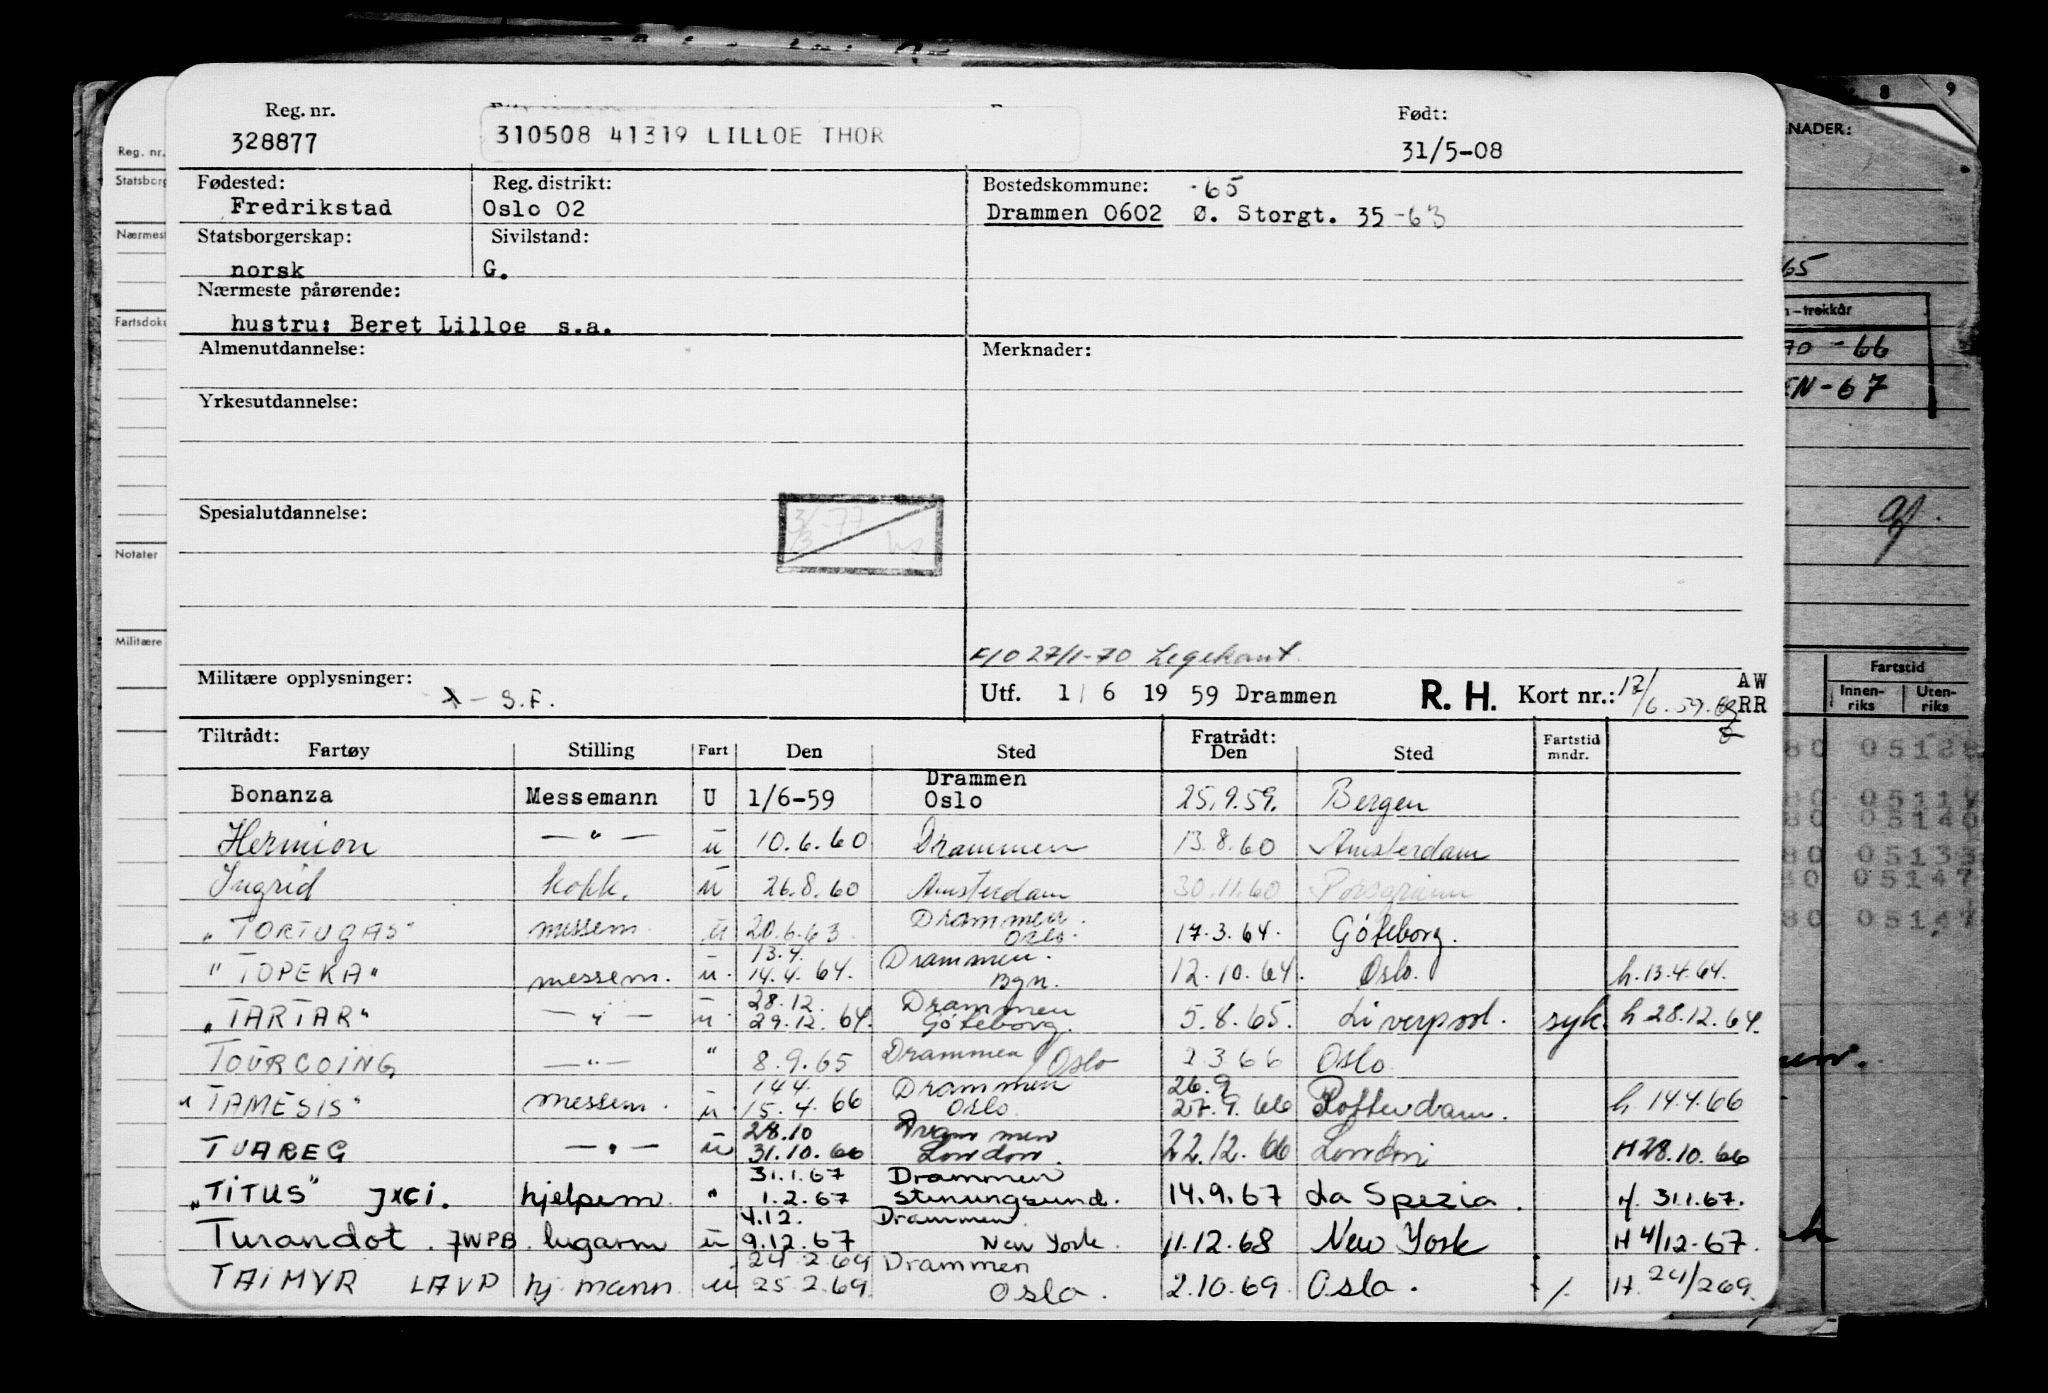 Reg. nr. Født:
328877 310508 41319 LILLOE THOR 31/5-08
Fødested: Reg. distrikt: Bostedskommune: -65
Fredrikstad Oslo 02 Drammen 0602 Ø. Storgt. 35 -63
Statsborgerskap: Sivilstand:
norsk G.
Nærmeste pårørende:
hustru: Beret Lilloe s.a.
Almenutdannelse: Merknader:
Yrkesutdannelse:
Spesialutdannelse:
3/3-77
27/1-70 Legekont.
Militære opplysninger: Utf. 1/6 1959 Drammen R. H. Kort nr.: 17/6.59. AW
S.F. RR
Tiltrådt: Fratrådt:
Fartøy Stilling Fart Den Sted Den Sted Fartstid mndr.
Bonanza Messemann U 1/6-59 Drammen Oslo 25.9.59. Bergen
Hermion — " — u 10.6.60 Drammen 13.8.60 Amsterdam
Ingrid kokk. u 26.8.60 Amsterdam 30.11.60 Porsgrunn
"TORTUGAS" messem. u 20.6.63 Drammen. Oslo. 17.3.64. Göteborg.
"TOPEKA" messem. u. 13.4. 14.4.64. Drammen. Bgn. 12.10.64. Oslo. h. 13.4.64.
"TARTAR" — " — u. 28.12. 29.12.64. Drammen Göteborg. 5.8.65. Liverpool. syk. h 28.12.64.
TOURCOING — " — " 8.9.65 Drammen / Oslo 2.3.66 Oslo
"TAMESIS" messem. u 14.4. 15.4.66 Drammen Oslo. 26.9 27.9.66 Rotterdam. h 14.4.66
TUAREG — " — u 28.10 31.10.66 Drammen London. 22.12.66 London H 28.10.66
"TITUS" JXCI. hjelpem. " 31.1.67 1.2.67 Drammen Stenungsund. 14.9.67 La Spezia. H. 31.1.67.
Turandot. JWPB. lugarm u 4.12. 9.12.67 Drammen New York. 11.12.68 New York H 4/12-67.
TAIMYR LAVP hj.mann. u 24.2.69 25.2.69 Drammen Oslo. 2.10.69. Oslo. H. 24/2 69.
Reg. nr.
Statsborg
Nærmest
Fartsdoku
Notater
Militære
8 9
NADER:
65
-trekkår
70 - 66
EN - 67
Fartstid
Innenriks Utenriks
80 05128
80 0511
80 05140
80 05133
80 05147
80 0514